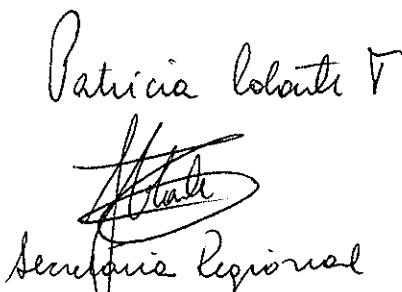 Patricia Colarte T
Secretaria Regional